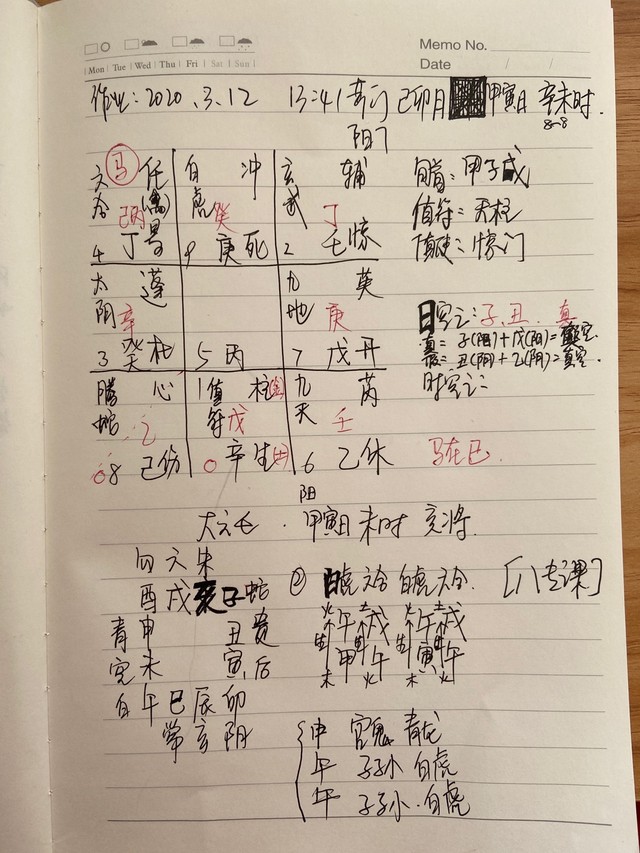 Memo No.
Mon Tue Wed Thu Fri Sat Sun
Date / /
作业:2020.3.12 13:41 己卯月 甲寅日 辛未时.
阳7
马
六合 任 白虎 冲 玄武 辅
丙 癸 丁
4 丁景 9 庚死 2 惊
旬首:甲子戊
值符:天柱
值使:惊门
太阴 蓬 九地 英
辛 庚
3 癸杜 5 丙 7 戊开
日空亡:子.丑. 真
真= 子(阳)+戊(阳)=真空.
丑(阴)+乙(阴)=真空.
时空亡:
螣蛇 心 值符 柱 九天 芮
乙 戊 壬
8 己伤 1 辛生 6 乙休
马在巳.
阳
大六壬. 甲寅日 未时 亥将.
勾 六 朱
酉 戌 亥 子 蛇
② 白虎 六合 白虎 六合. [八专课]
青 申 丑 贵
火午 土戌 火午 土戌
空 未 寅 后
生 甲木 午火 生 寅木 午火
白 午 巳 辰 卯
常 玄 阴
申 官鬼 青龙
午 子孙 白虎
午 子孙.白虎